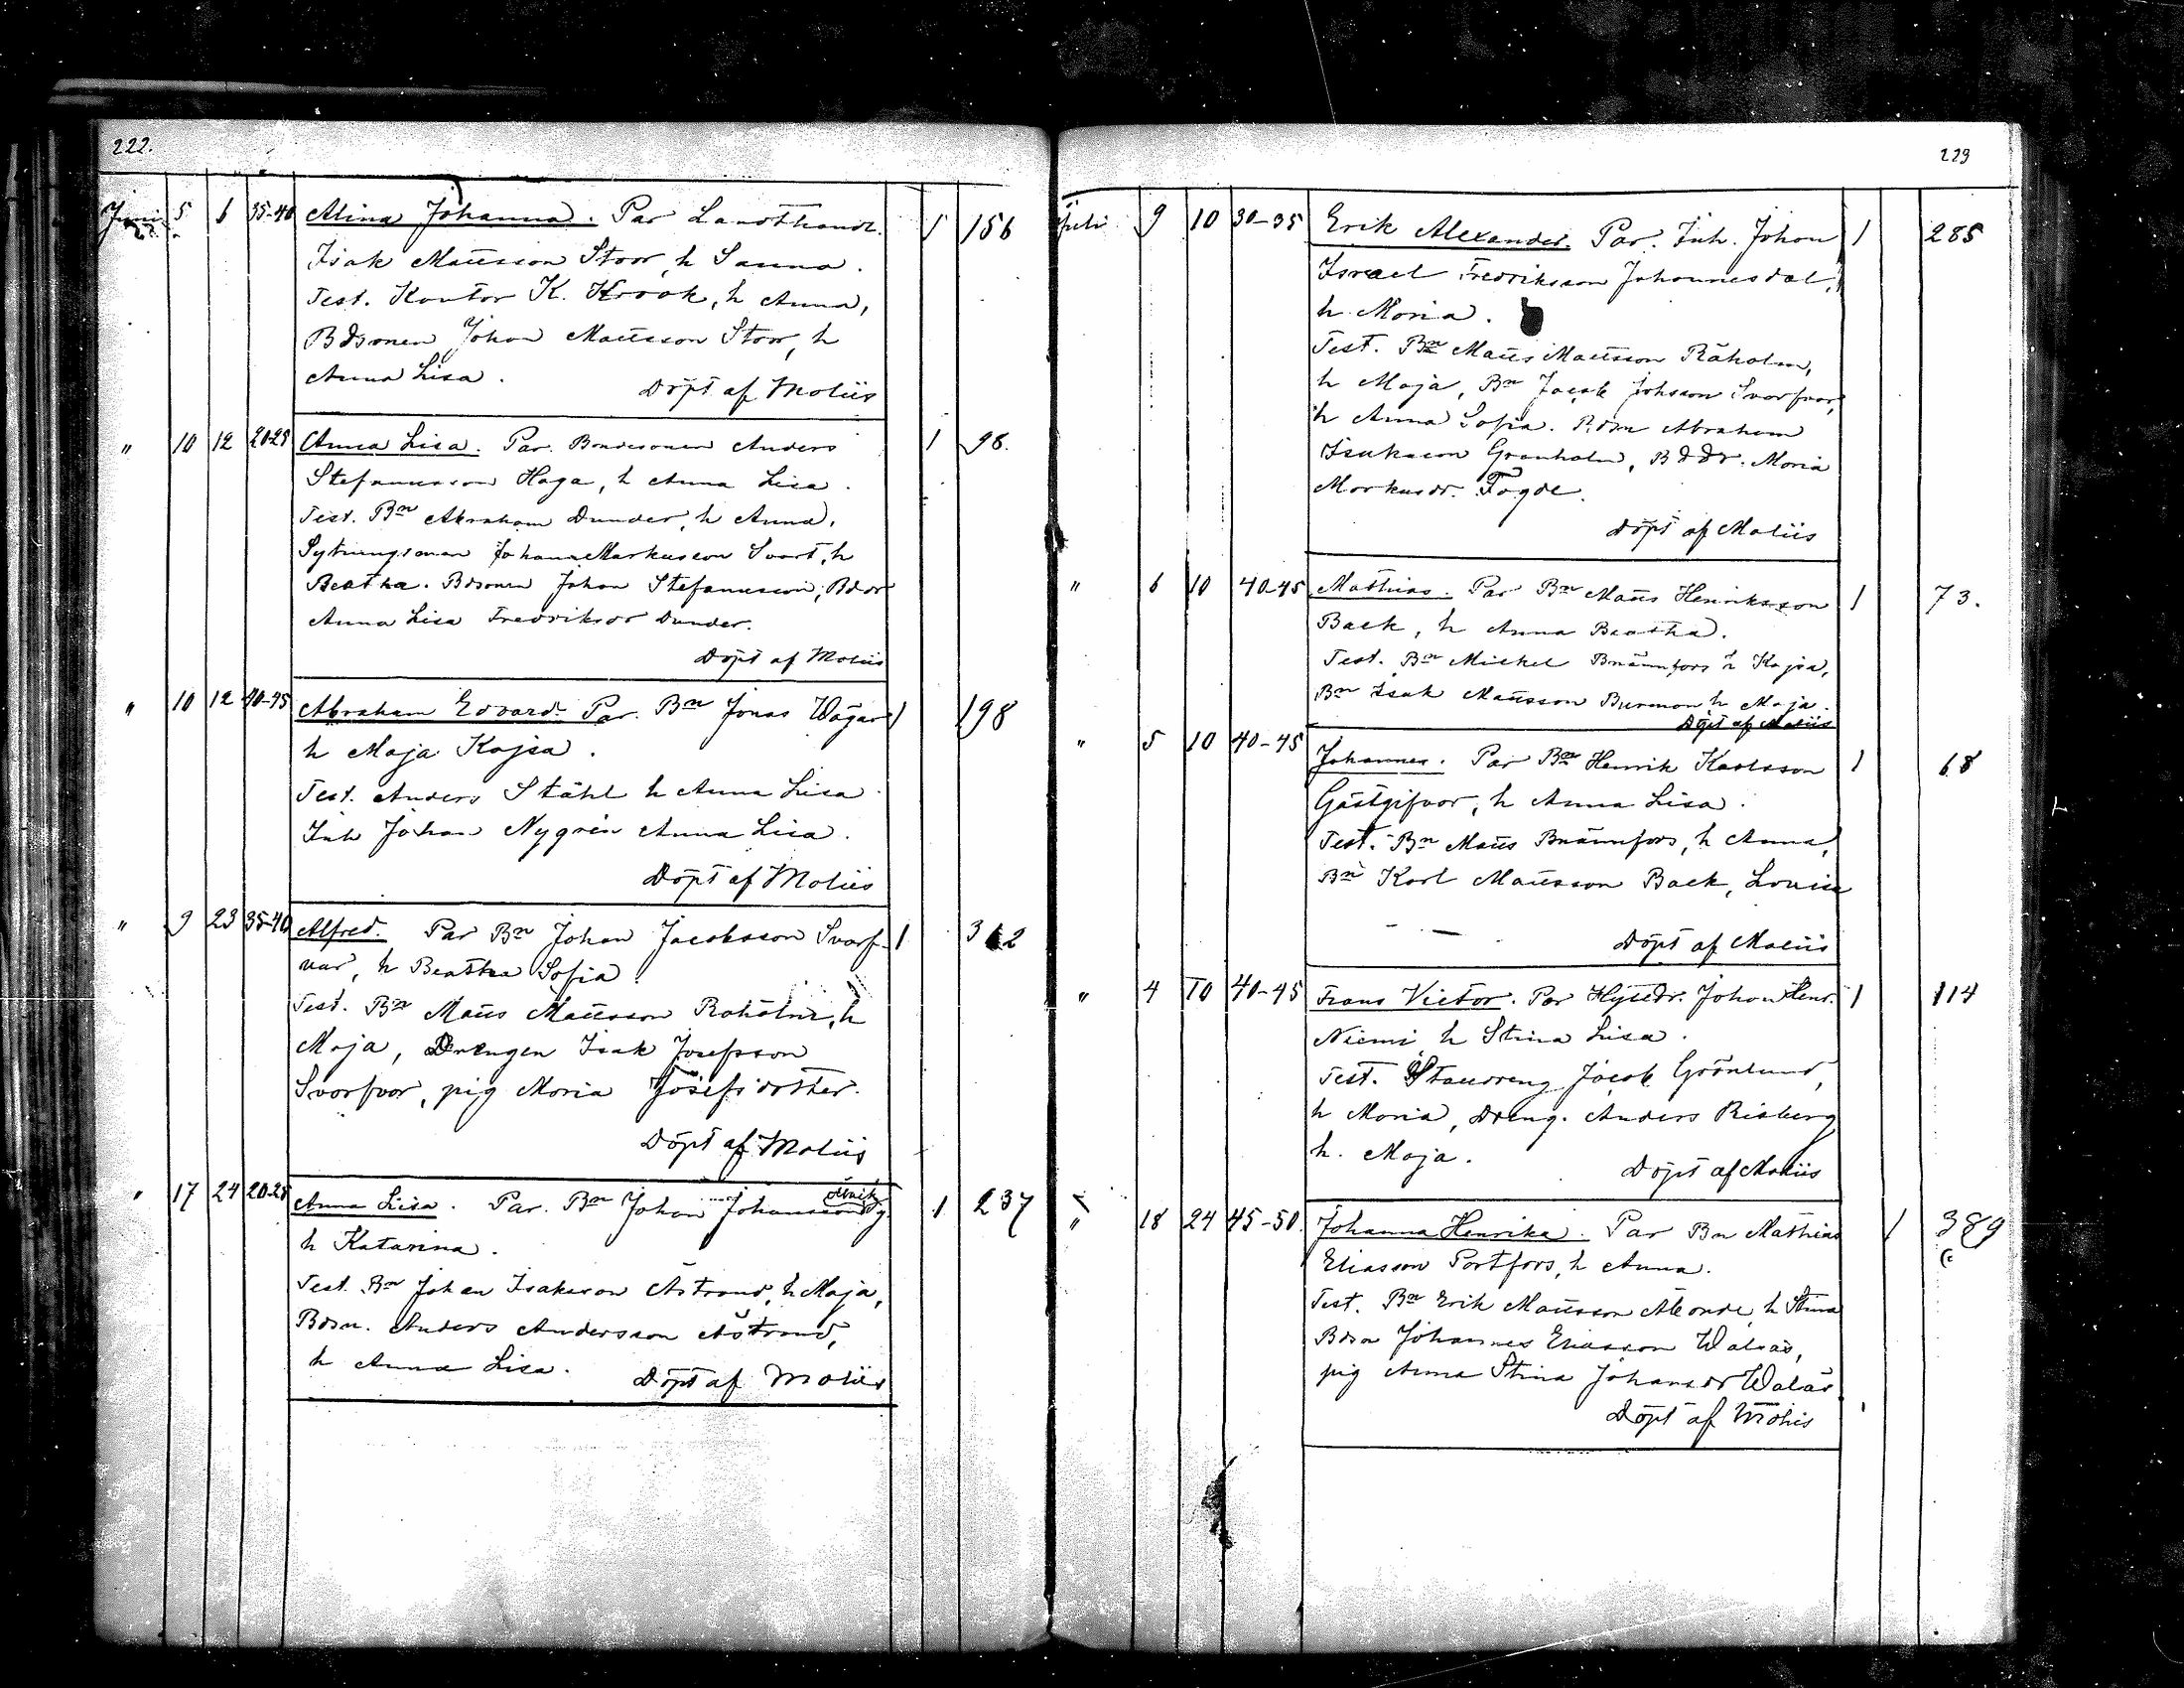 222.
Juni 5 6 35-40 Alina Johanna. Par Landthandl. 1 156
Isak Matsson Stoor, h Sanna.
Test. Kantor K. Krook, h Anna,
Bdsonen Johan Matsson Stoor, h
Anna Lisa. Döpt af Moliis
" 10 12 20-25 Anna Lisa. Par. Bondesonen Anders 1 98.
Stefanusson Haga, h Anna Lisa.
Test. Bn Abraham Dunder, h Anna,
Sytningsman Johan Markusson Svart, h
Beatha. Bdsonen Johan Stefanusson, Bddr
Anna Lisa Fredriksdr Dunder.
Döpt af Moliis
" 10 12 40-45 Abraham Edvard. Par. Bn Jonas Wägar 1 198
h Maja Kajsa.
Test. Anders Ståhl h Anna Lisa
Inh Johan Nygrén Anna Lisa.
Döpt af Moliis
" 9 23 35-40 Alfred. Par Bn Johan Jacobsson Svarf- 1 312
var, h Beatha Sofia
Test. Bn Mats Matsson Råholm, h
Maja, Drengen Isak Josefsson
Svarfvar, pig Maria Josefsdotter.
Döpt af Moliis
" 17 24 20-25 Anna Lisa. Par. Bn Johan Johansson 1 237
h Katarina.
Test. Bn Johan Isaksson Åstrand, h Maja,
Bdsn. Anders Andersson Åstrand,
h Anna Lisa. Döpt af Moliis
223
Juli 9 10 30-35 Erik Alexander. Par. Inh. Johan 1 285
Israel Fredriksson Johannesdal,
h Maria.
Test. Bn Mats Matsson Råholm,
h Maja, Bn Jacob Johsson Svarfvar,
h Anna Sofia. Bdsn Abraham
Isaksson Granholm, Bddr. Maria
Markusdr. Fogde.
Döpt af Moliis
" 6 10 40-45 Mathias. Par Bn Mats Henriksson 1 73.
Back, h Anna Beatha.
Test. Bn Mickel Brännfors h Kajsa,
Bn Isak Matsson Burman h Maja.
Döpt af Moliis
" 5 10 40-45 Johannes. Par Bn Henrik Karlsson 1 68
Gästgifvar, h Anna Lisa.
Test. Bn Mats Brännfors, h Anna,
Bn Karl Matsson Back, Lovisa
Döpt af Moliis
" 4 10 40-45 Frans Victor. Par Hyttedr. Johan Henr. 1 114
Niemi h Stina Lisa.
Test. Jacob Grönlund,
h Maria, Dreng. Anders Risberg
h. Maja. Döpt af Moliis
" 18 24 45-50 Johanna Henrika. Par Bn Mathias 1 389
Eliasson Portfors, h Anna.
Test. Bn Erik Matsson h Stina
Bdsn Johannes Eliasson Walsäs,
pig Anna Stina Johansdr Walsäs
Döpt af Moliis